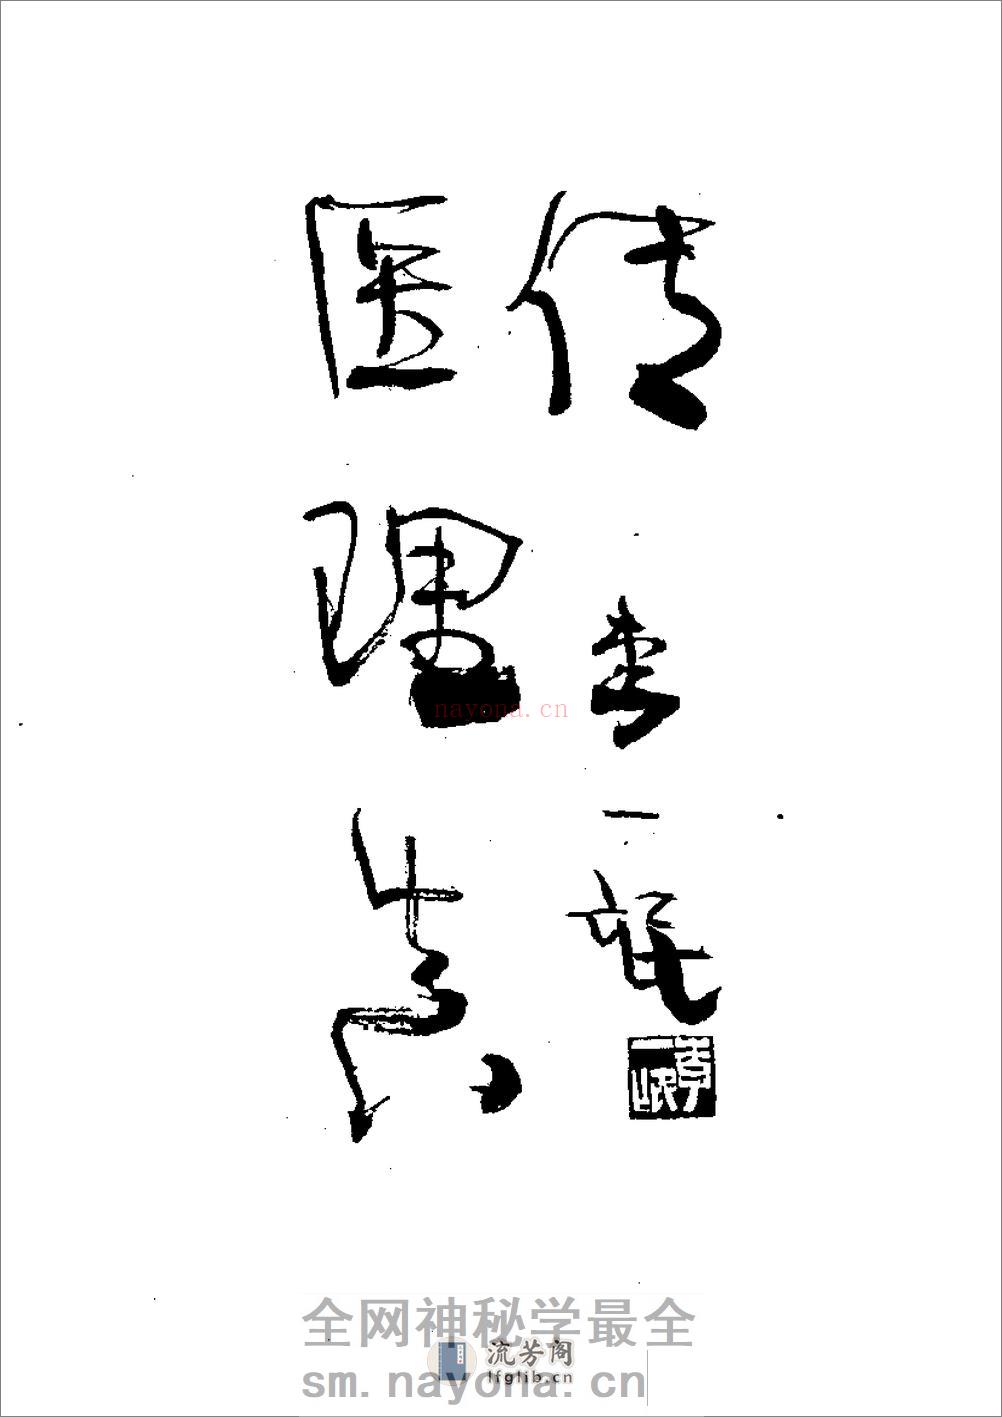 医理真
传
李一氓
李一氓
nayona.cn
全网神秘学最全
流芳阁
lfglib.cn
sm.nayona.cn